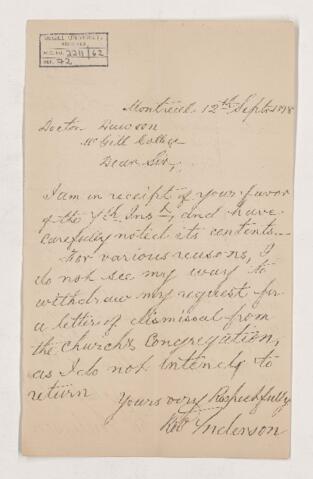 McGILL UNIVERSITY
ARCHIVES
ACC. NO. 2211/62
REF. 72
Montreal 12th Sept. 1878
Doctor Dawson
McGill College
Dear Sir,
I am in receipt of your favor
of the 7th Inst, and have
carefully noted its contents.
For various reasons, I
do not see my way to
withdraw my request for
a letter of dismissal from
the Church & Congregation,
as I do not intend to
return
Yours very Respectfully
Anderson